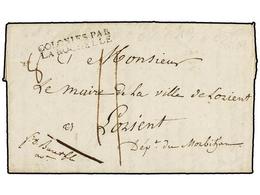 COLONIES PAR
LA ROCHELLE
A Monsieur
Le maire de la ville de Lorient
à
Lorient
Dépt. du Morbihan